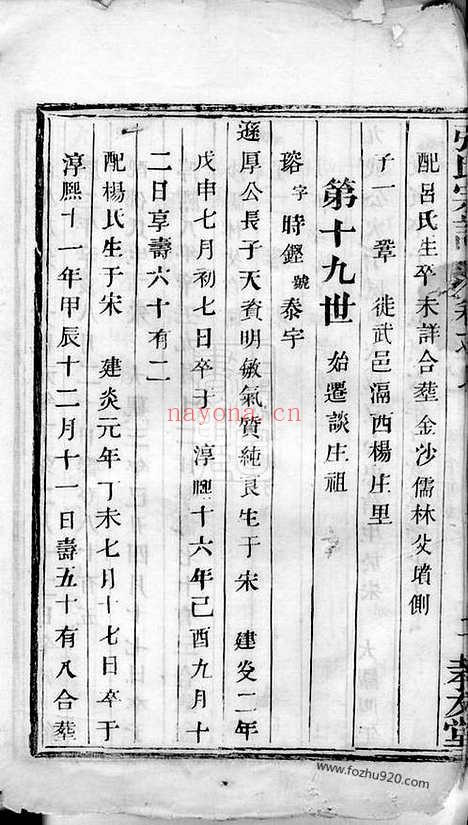 配呂氏生卒未詳合葬金沙儒林父墳側
子一　鞏　徙武邑滆西楊庄里
第十九世　始遷談庄祖
瑢字時鏗號泰宇
遜厚公長子天資明敏氣質純良生于宋　建炎二年
戊申七月初七日卒于　淳熈十六年己酉九月十
二日享壽六十有二
配楊氏生于宋　建炎元年丁未七月十七日卒于
淳熈十一年甲辰十二月十一日壽五十有八合葬
nayona.cn
www.fozhu920.com